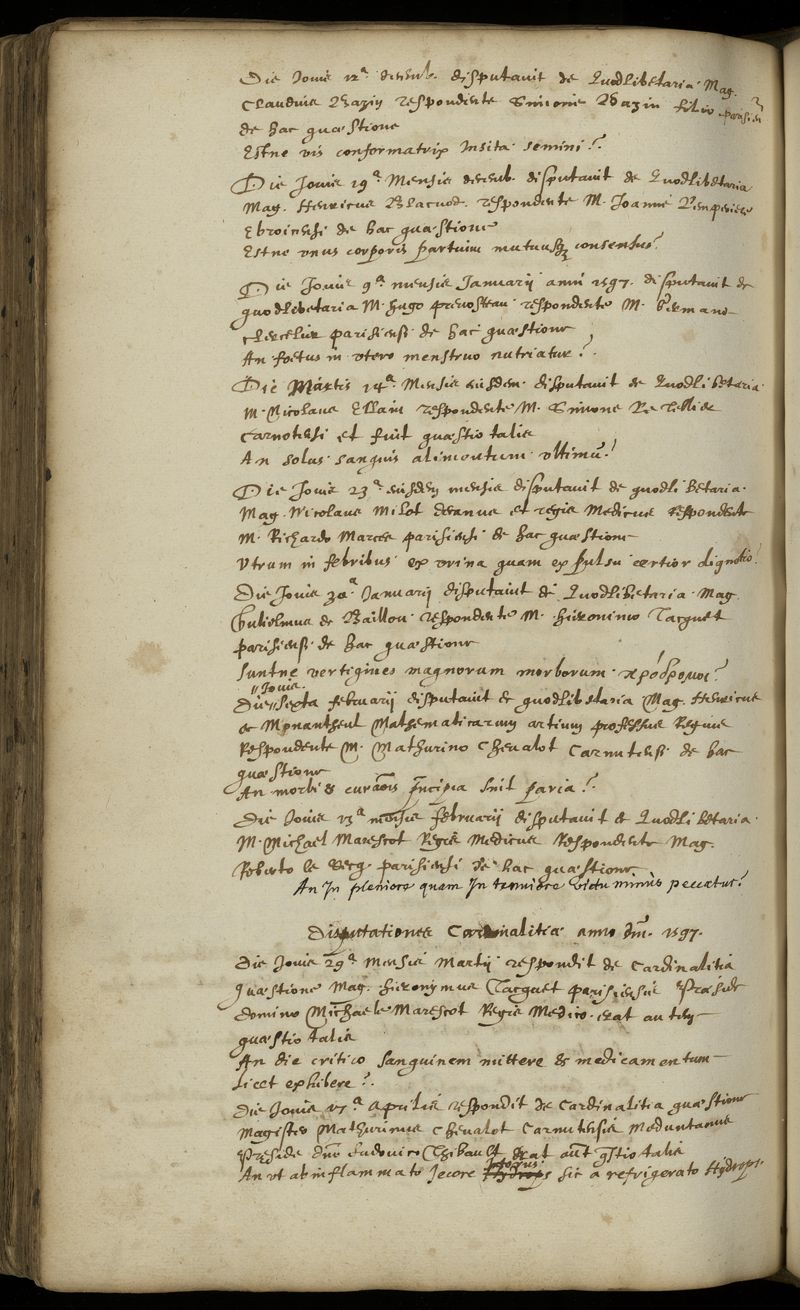 Die Jovis 12ª decemb. disputavit de Quodlibetaria Mag.
Claudius Bazin respondente Simone Bazin filio parisien
de hac quæstione
Estne vis conformatrix insita semini?
Die Jovis 19ª Mensis decemb. disputavit de Quodlibetaria
Mag. Henricus Blacuod. respondente M. Joanne
Ebroicensi de hac quæstione
Estne unus corporis partium mutuusq; consensus?
Die Jovis 9ª mensis Januarij anni 1597. disputavit de
quodlibetaria M. Hugo prevosteau respondente M. Germano
parisiensi de hac quæstione
An foetus in utero menstruo nutriatur?
Die Martis 14ª Mensis eiusdem disputavit de Quodlibetaria
M. Nicolaus Ellain respondente M. Simone
Carnotensi et fuit quæstio talis
An solus sanguis alimentum ultimū?
Die Jovis 23ª eiusdem mensis disputavit de quodlibetaria
Mag. Nicolaus Milot decanus et regis Medicus respondente
M. Richardo Marces parisiensi de hac quæstione
Utrum in febribus ex urina quam ex pulsu certior dignotio?
Die Jovis 30ª Januarij disputavit de Quodlibetaria Mag.
Gulielmus de Baillou respondente M. Hieronimo Tacquet
parisiensi de hac quæstione
Suntne vertigines magnorum morborum πρόδρομοι?
Jovis
Die sexta februarij disputavit de quodlibetaria Mag. Henricus
de Monantheul Mathematicarum artium professor Regius
Respondente M. Mathurino Chevalot Carnutensi de hac
quæstione
An morbi & curaōis prīncipia sint paria?
Die Jovis 13ª mensis februarij disputavit de Quodlibetaria
M. Michael Marescot Regis Medicus Respondente Mag.
Roberto le Secq parisiensi de hac quæstione
An In pleniore quam In tenuiore victu minus peccetur?
Disputationes Cardinalitiæ anno dm̄. 1597.
Die Jovis 29ª Mensis Martij respondit de Cardinalitia
quæstione Mag. Hieronymus Tacquet parisiensis Præside
domino Michaele Marescot Regis Medico. erat autem
quæstio talis
An die critico sanguinem mittere & medicamentum
licet exhibere?
Die Jovis 17ª Aprilis respondit de Cardinalitia quæstione
Magister Mathurinus Chevalot Carnutensis Meduntanus
Præside dn̄o Ludovico Thibault erat aūt q̄stio talis
Icterus
An ut ab inflammato Jecore Hydrops sic a refrigerato Hydrops